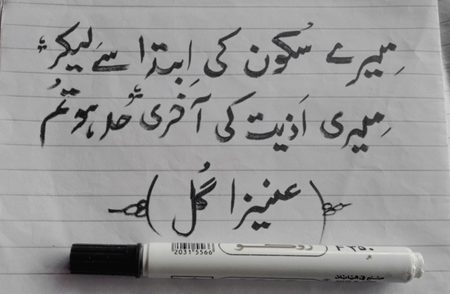 میرے سُکون کی اِبتدا سے لیکر
میری اَذیت کی آخری حد ہو تُم
(عنیزا گُل)
2031 5566
۳۵۰